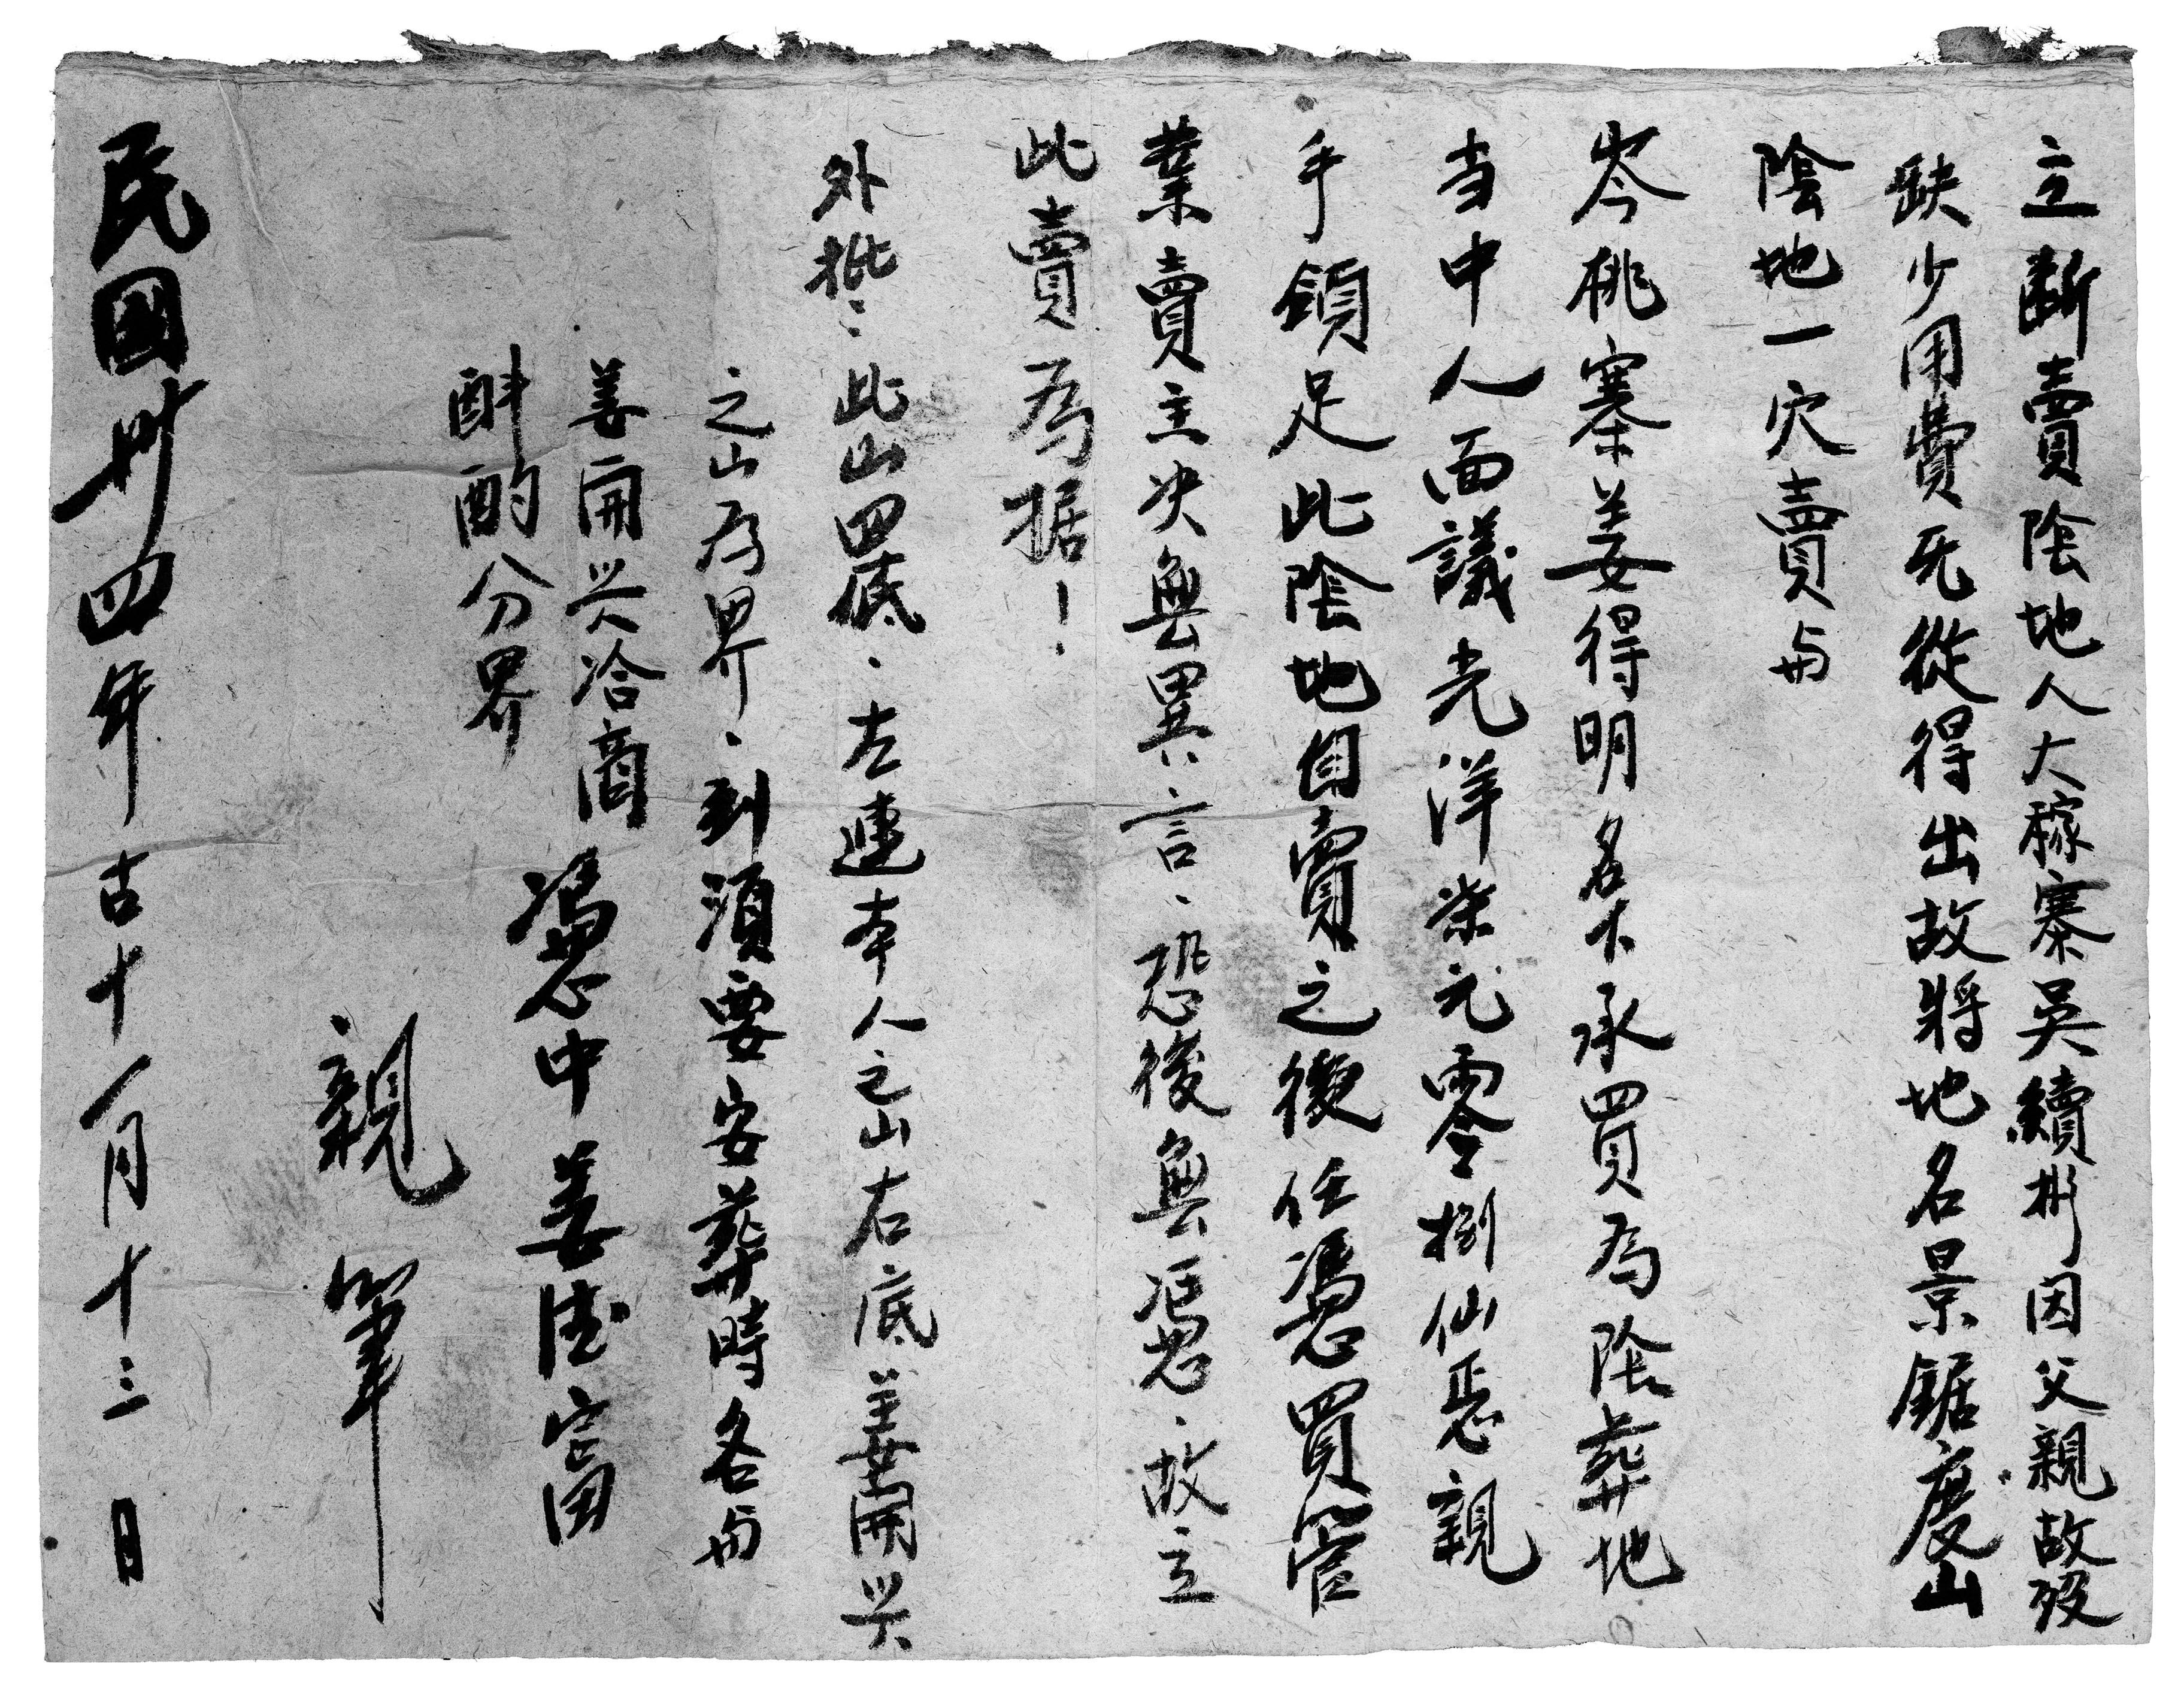 立斷賣陰地人大稼寨吳續彬因父親故歿
缺少用費无從得出故將地名景鋸度山
陰地一穴賣与
岑桃寨姜得明名下承買為陰葬地
当中人面議光洋柒元零捌仙慿親
手領足此陰地自賣之後任憑買管
業賣主决無異言、恐後無慿、故立
此賣為据！
外批：此山四底、左連本人之山右底姜開兴
之山為界、到須要安葬時各与
姜開兴洽商
斟酌分界
憑中姜德富
親筆
民國卅四年古十一月十三日